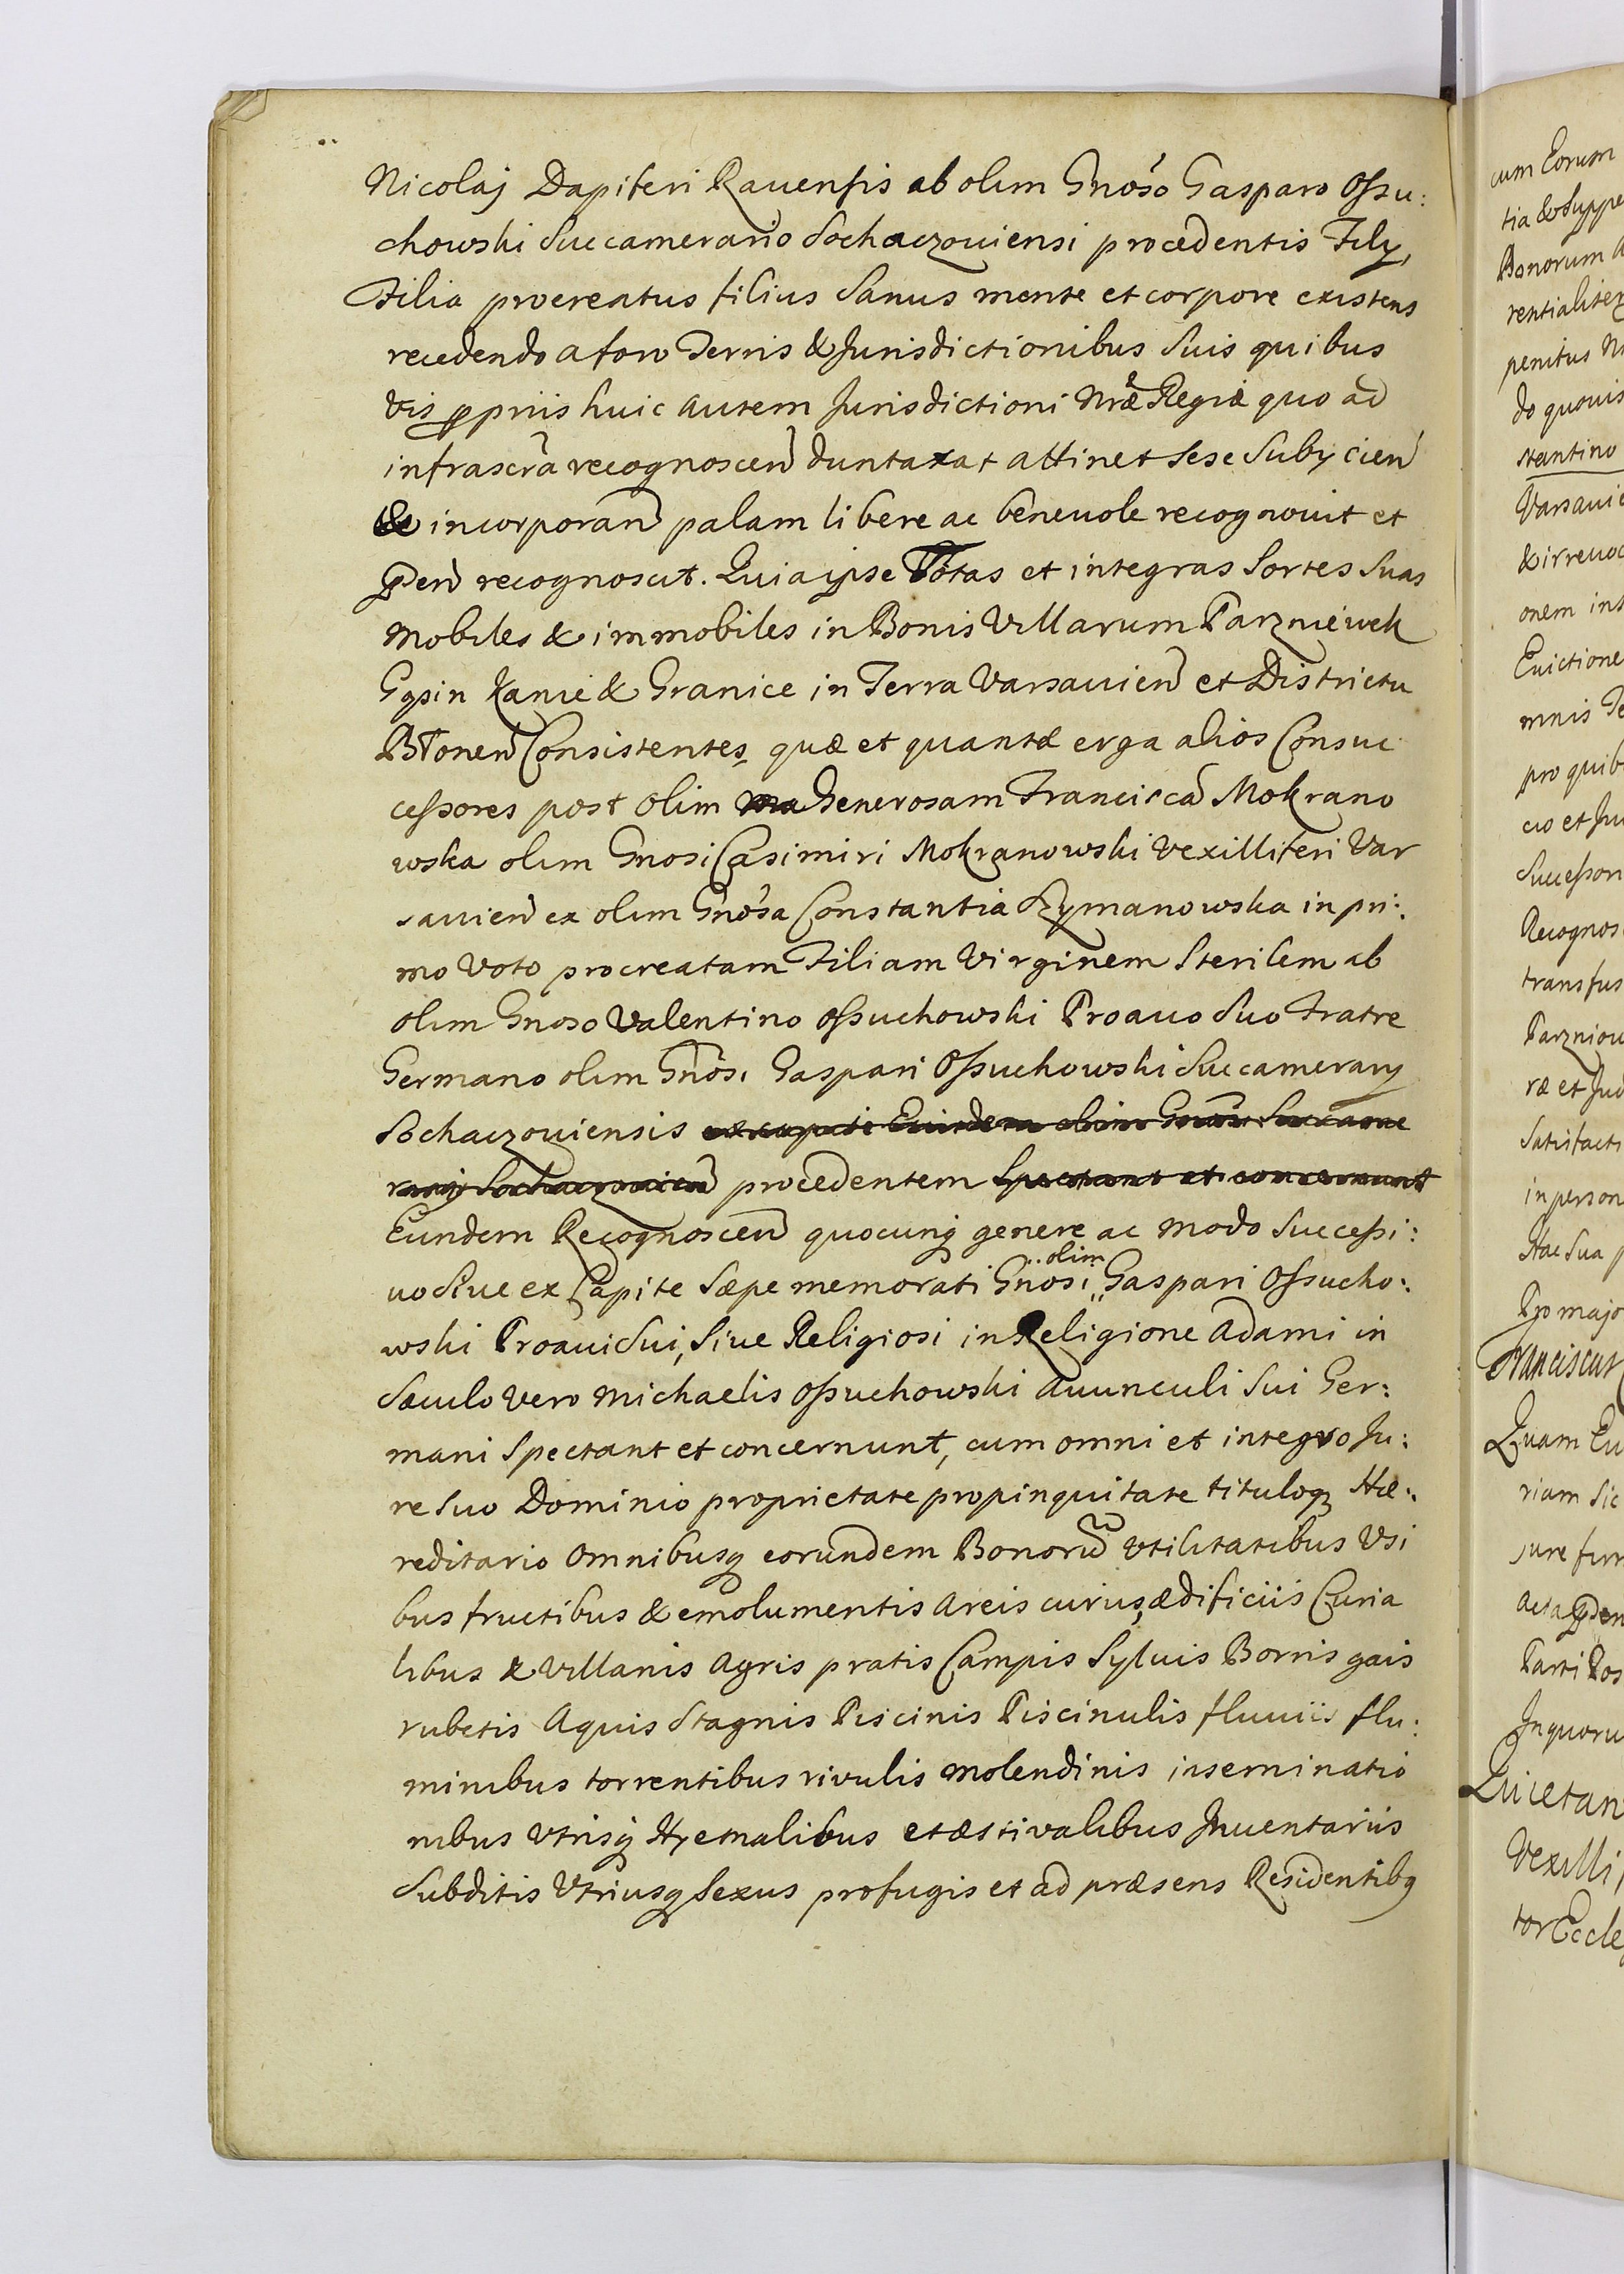 Nicolaj Dapiferi Rauensis ab olim Gnoso Gasparo Ossu:
chowski Succamerario Sochaczouiensi procedentis Filÿ,
Filia procreatus filius Sanus mente et corpore existens
recedendo a foro Terris & Jurisdictionibus Suis quibus
vis ppriis huic autem Jurisdictioni Nræ Regiæ quo ad
infrascra recognoscen duntaxat attinet sese Subÿcien
& incorporan palam libere ac beneuole recognouit et
pden recognoscit. Quia ipse Totas et integras Sortes Suas
Mobiles & immobiles in Bonis Villarum Parzniewek
Gąsin Kanie & Granice in Terra Varsauien et Districtu
Błonen Consistentes, quæ et quantæ erga alios Consuc
cessores post olim Generosam Francisca Mokrano
wska olim Gnosi Casimiri Mokranowski Vexilliferi Var
sauien ex olim Gnosa Constantia Rzymanowska in pri:
mo Voto procreatam Filiam Virginem Sterilem ab
olim Gnoso Valentino Ossuchowski Proauo Suo Fratre
Germano olim Gnosi Gaspari Ossuchowski Succamerarÿ
Sochaczouiensis ex capite Eiusdem olim Gnosi Succame
rarÿ Sochaczouien procedentem Spectant et concernunt
Eundem Recognoscen quocunq genere ac modo Successi:
uo Siue ex Capite Sæpe memorati Gnosi olim Gaspari Ossucho:
wski Proaui Sui, Siue Religiosi in Religione Adami in
Sæculo Vero Michaelis Ossuchowski Auunculi Sui Ger:
mani Spectant et concernunt, cum omni et integro Ju:
re Suo Dominio proprietate propinquitate tituloq Hæ:
reditario Omnibusq eorundem Bonoru Vtilitatibus Vsi
bus fructibus & emolumentis Areis curiis, ædificiis Curia
libus & Villanis Agris pratis Campis Syluis Borris gais
rubetis Aquis Stagnis Piscinis Piscinulis fluuiis flu:
minibus torrentibus rivulis molendinis inseminatio
nibus Vtrisq Hyemalibus et æstivalibus Inuentariis
Subditis Vtriusq Sexus profugis et ad præsens Residentibq
cum Eorum
tia & Suppe
Bonorum
rentialiter
penitus
do quouis
stantino
Varsauie
& irreuoc
onem int
Euictione
mnis Te
pro quib
cio et Ju
Successor
Recognos
transfus
Parzniow
ræ et Jud
Satisfacti
in person
Hac Sua p
Pro majo
Franciscus
Quam Eu
riam Sic
jure firm
Acta pden
Parti Pos
In quoru
Quietan
Vexilli
tor Eccle